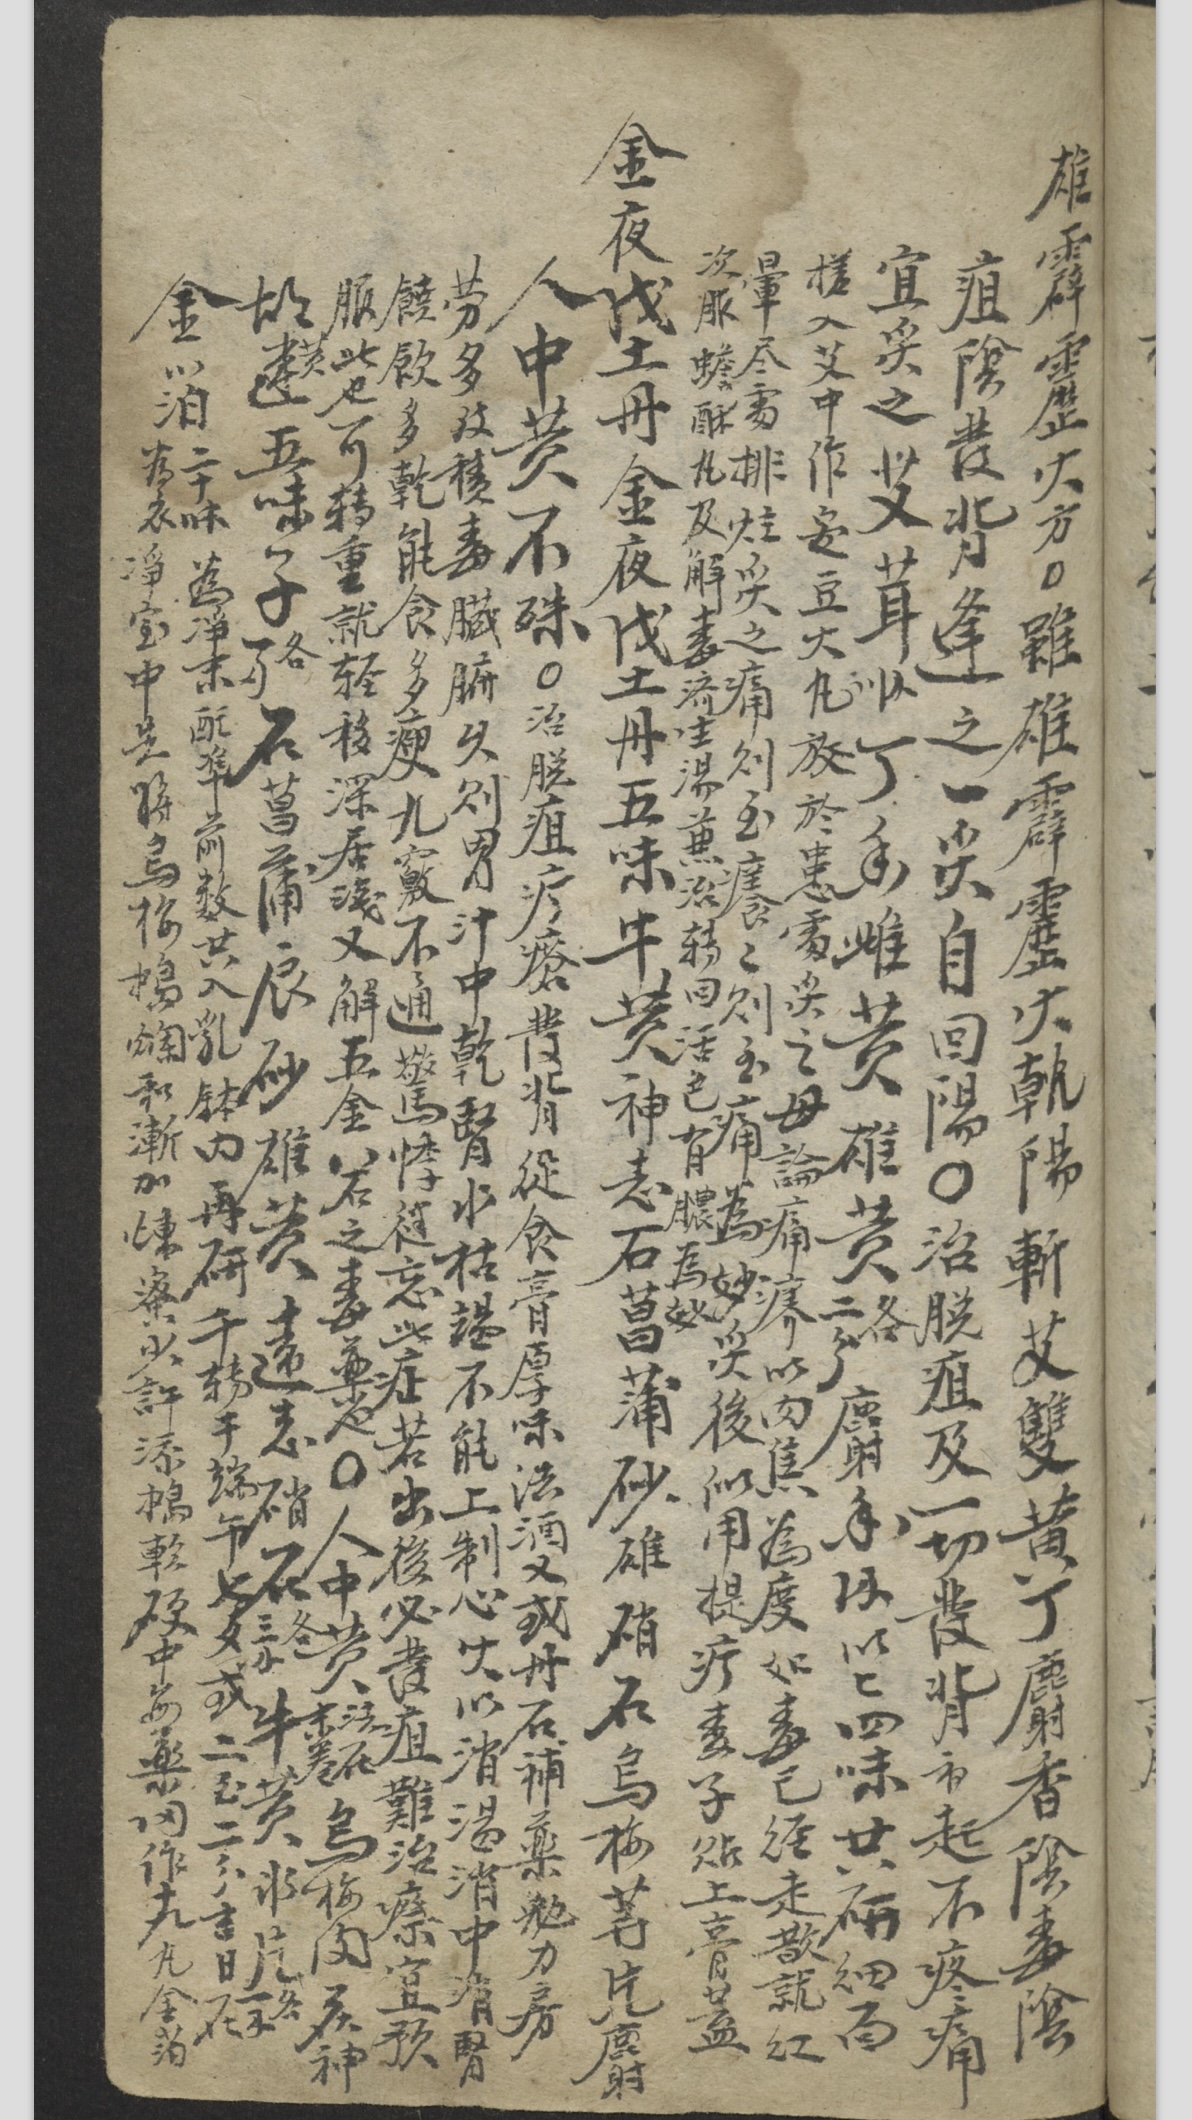 雄霹靂火方○雖雄霹靂火執陽斬艾雙黃丁麝香陰毒陰
疽陰發背逢之一炙自回陽○治脫疽及一切發背初起不疼痛
宜炙之艾茸以丁香雌黃雄黃各二分麝香以上四味共研細而
搓入艾中作安豆大丸放於患處炙之毋論痛癢以肉焦為度如毒已經走散就紅
暈尽處排炷炙之痛則至癢癢則至痛為妙炙後似用提疔麥子貼上膏蓋
次服蟾酥丸及解毒濟生湯兼治轉回活色有膿為妙
金夜戊土丹金夜戊土丹五味牛黃神志石菖蒲砂雄硝石烏梅芩片麝
人中黃不殊○治脫疽疔瘡發背從食膏厚味法酒又或丹石補藥勉力房
劳多致積毒臟腑久則胃汁中乾腎水枯竭不能上制心火以消渴消中消腎
饒飲多乾能食多瘦九竅不通驚悸健忘此症若出後必發疽難治療宜預
服此也可轉重就轻移深居淺又解五金八石之毒藥也○人中黃烏梅肉茯神
胡黃連五味子各石菖蒲辰砂雄黃遠志硝石各三分牛黃冰片各
金泊二十味為淨末配準前数共入乳鉢内再研千轉于端午七夕或二至二分吉日在
為衣淨室中先將烏梅搗爛和漸加煉蜜少許添搗軟硬中安藥内作丸九金泊